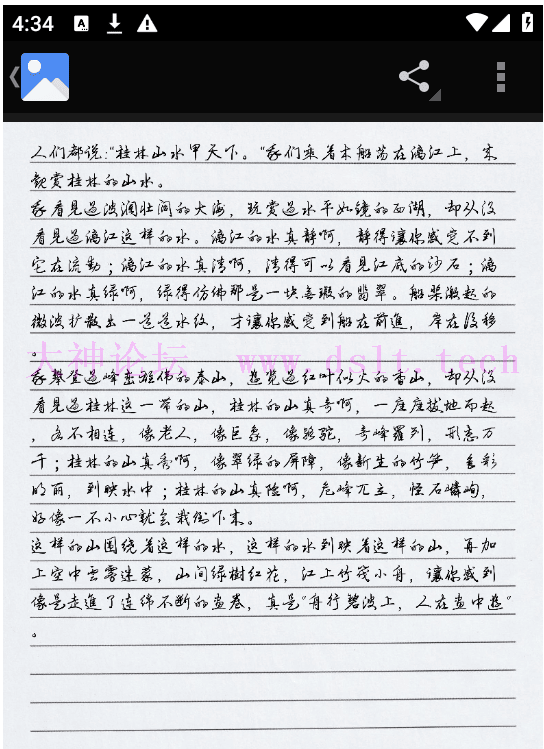 4:34
人们都说："桂林山水甲天下。"我们乘着木船荡在漓江上，来
观赏桂林的山水。
我看见过波澜壮阔的大海，玩赏过水平如镜的西湖，却从没
看见过漓江这样的水。漓江的水真静啊，静得让你感觉不到
它在流动；漓江的水真清啊，清得可以看见江底的沙石；漓
江的水真绿啊，绿得仿佛那是一块无瑕的翡翠。船桨激起的
微波扩散出一道道水纹，才让你感觉到船在前進，岸在後移
。
大神论坛 www.dslt.tech
我攀登过峰峦雄伟的泰山，遊览过红叶似火的香山，却从没
看见过桂林这一带的山，桂林的山真奇啊，一座座拔地而起
，各不相连，像老人，像巨象，像骆驼，奇峰羅列，形态万
千；桂林的山真秀啊，像翠绿的屏障，像新生的竹笋，色彩
明丽，倒映水中；桂林的山真险啊，危峰兀立，怪石嶙峋，
好像一不小心就会栽倒下来。
这样的山围绕着这样的水，这样的水倒映着这样的山，再加
上空中云雾迷蒙，山间绿樹红花，江上竹筏小舟，让你感到
像是走進了连绵不断的畫卷，真是"舟行碧波上，人在畫中遊"
。